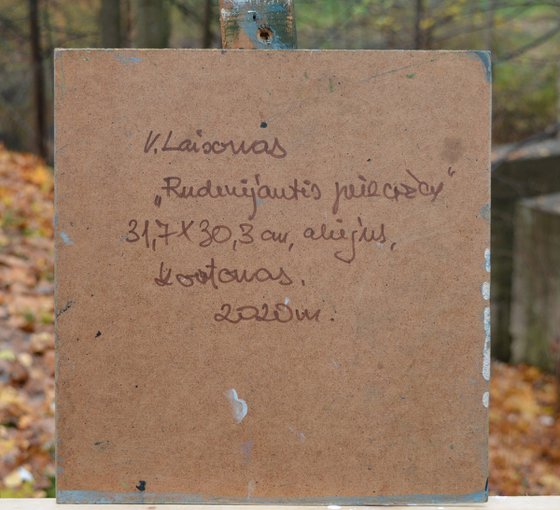 V. Laisonas
„Rudenijantis
31,7 X 30,3 cm, aliejus,
Kartonas.
2020 m.